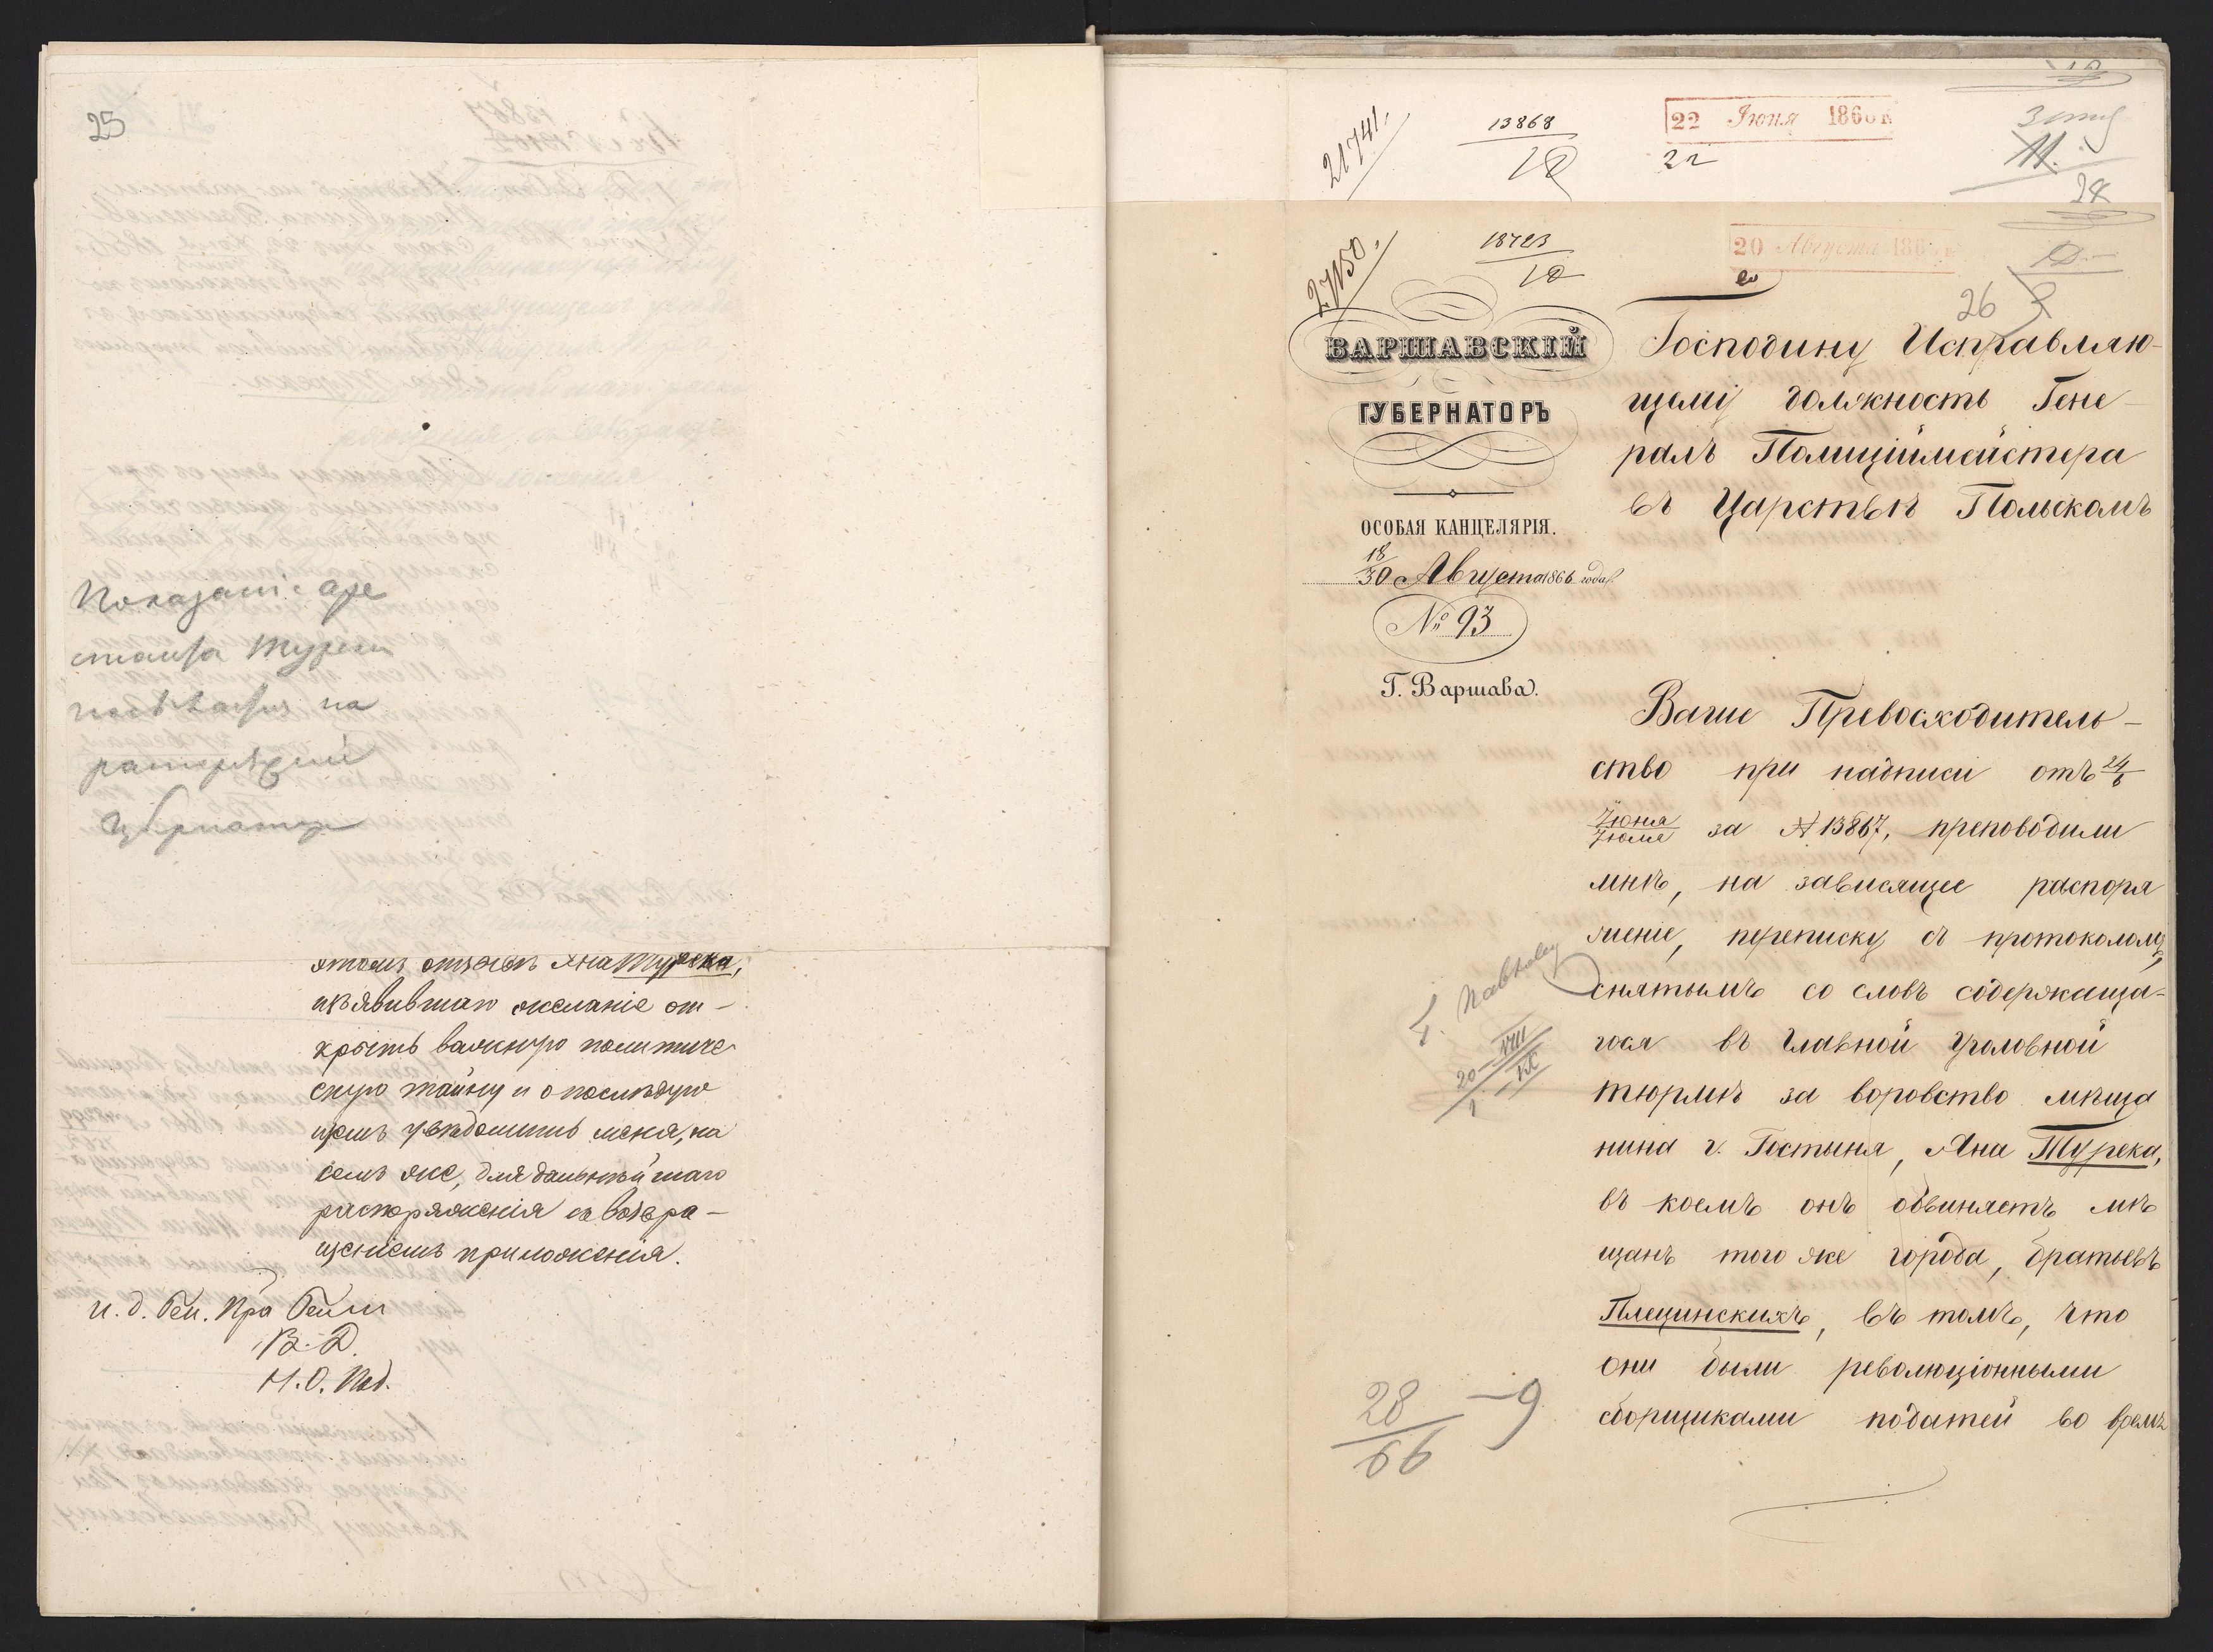 25
Показаніе аре
станта Турека
на
распоряженіе
Губернатора
этомъ отзывѣ Яна Турека,
изъявившаго желаніе от-
крыть важную политиче
скую тайну и о послѣдую
щемъ увѣдомить меня, на
семъ же, для дальнѣйшаго
распоряженія съ возвра-
щеніемъ приложенія.
и. д. Ген.
В. Д.
Н. О. Под.
21741.
13868
22 Іюня 1866
22
11.
24
27150.
18723
20 Августа 186
20
26
ВАРШАВСКІЙ
ГУБЕРНАТОРЪ
ОСОБАЯ КАНЦЕЛЯРІЯ.
18/30 Августа 1866 года.
№ 93
Г. Варшава.
Господину Исправляю-
щему должность Гене-
ралъ Полиціймейстера
въ Царствѣ Польскомъ
Ваше Превосходитель-
ство при надписи отъ 24/6
Іюня/Іюля за № 13867, препроводили
мнѣ, на зависящее распоря
женіе, переписку съ протоколомъ,
снятымъ со словъ содержаща-
гося въ Главной Уголовной
тюрьмѣ за воровство мѣща
нина г. Гостыня, Яна Турека,
въ коемъ онъ обвиняетъ мѣ
щанъ того же города, братьевъ
Плецинскихъ, въ томъ, что
они были революціонными
сборщиками податей во время
20 VIII
1 IX
28/66 - 9